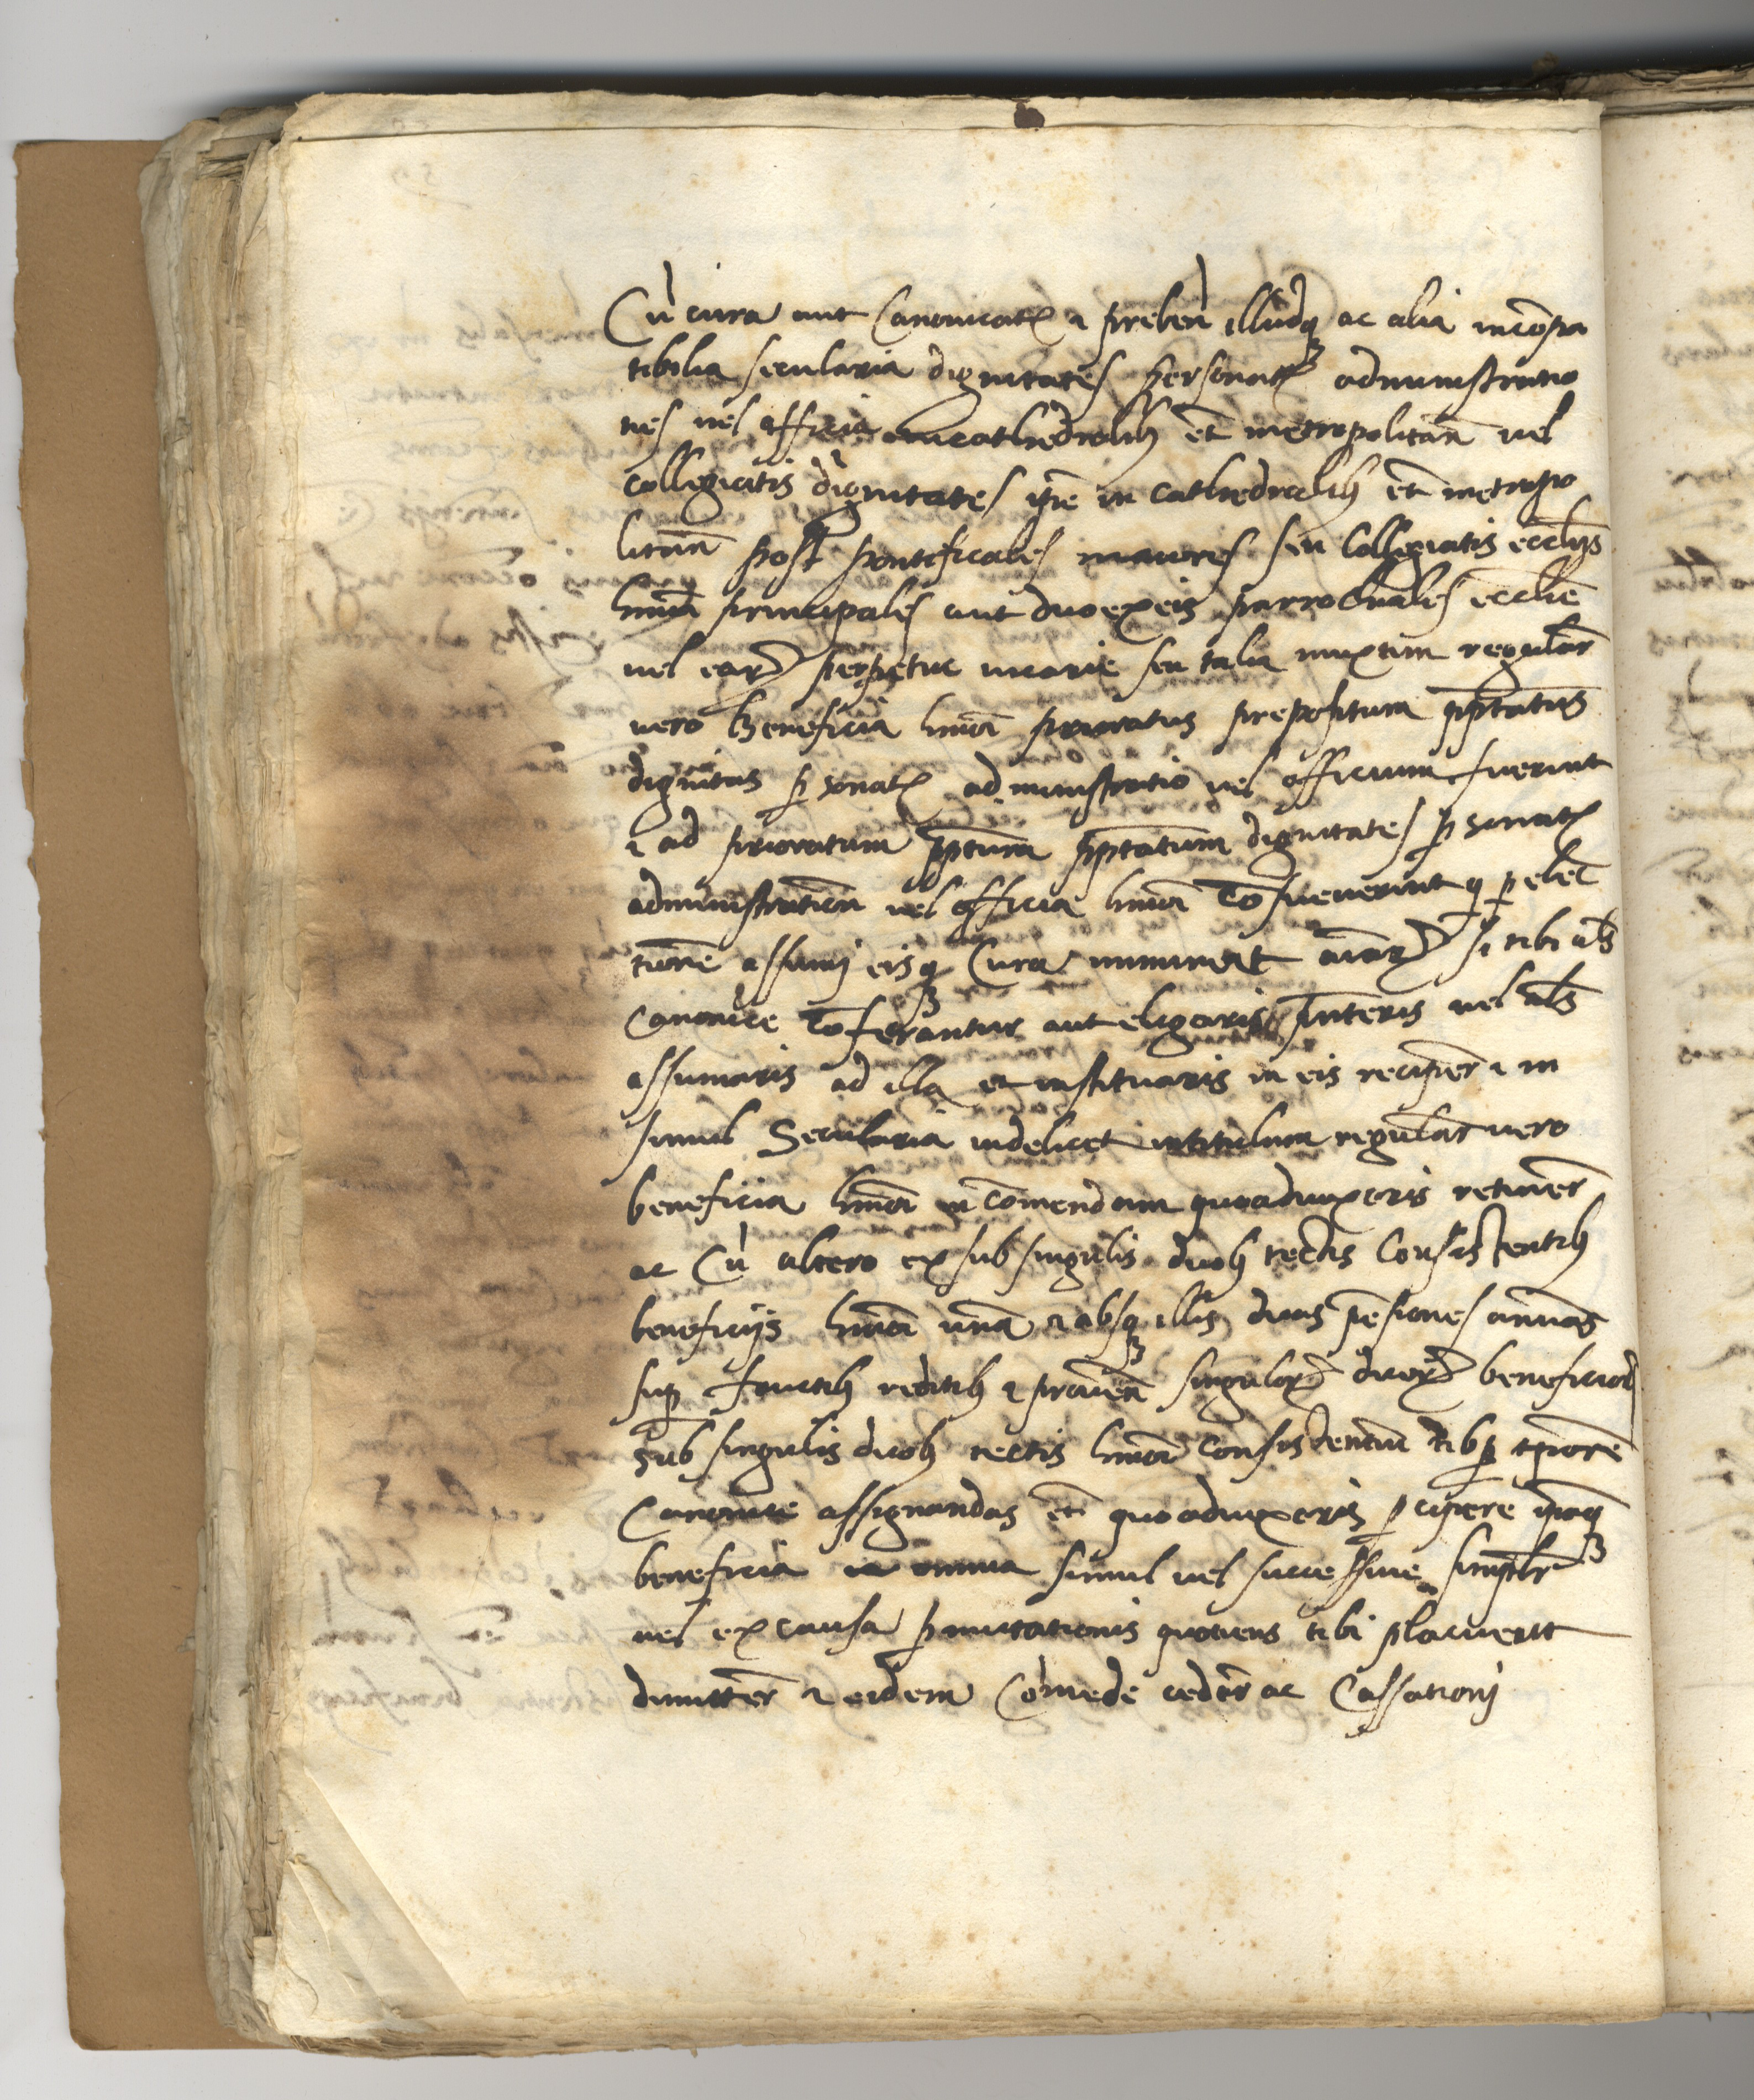 Cū cura aut Canonicatꝰ ⁊ preben̄ illudq₃ ac alia incōpa
tibilia secularia dignitates personatꝰ administratio
nes vel officia in cathedralib₉ et̄ metropolitan̄ vel
collegiatis dignitates ip̄e in cathedralib₉ et̄ metropo
litan̄ post pontificales maiores seu Collegiatis eccl̄ijs
hmōi principales aut duo ex eis parrochiales eccl̄ie
vel earꝝ perpetue vicarie seu talia mixtim regular̄
vero Beneficia hmōi prioratus prepositura pp̄tatus
dignitas ꝑsonatꝰ administratio vel officium fuerint
⁊ ad prioratum pp̄turā pp̄tatum dignitates ꝑsonatꝰ
administration̄ vel officia hmōi cōsueuerint q̄ ꝑ elec̄
tionē assumj eisq₃ Cura immineat aīarꝝ si tibi al̄s
Canonice cōferantur aut eligaris pn̄teris vel al̄s
assumaris ad illa et instituaris in eis reciper̄ ⁊ in
simul Secularia videlicet intitulum regular̄ vero
beneficia hmōi in cōmendam quoaduixeris retiner̄
ac Cū altero ex sub singulis duob₉ tectis Consistentib₉
beneficijs hmōi vnā ⁊ absq₃ illis duas pēsiones annuas
suꝑ fructib₉ reditib₉ ⁊ prouen̄ singulorꝝ duorꝝ beneficiorꝝ
Sub singulis duob₉ tectis hmōi Consistentiū tibi ꝓ tp̄ore
Canonice assignandas et̄ quoaduixeris ꝑcipere ip̄aq₃
beneficia omnia simul vel successiue simplr̄
vel ex causa ꝑmutationis quotiens tibi placuerit
dimitter̄ ⁊ eidem Cōmēde ceder̄ ac Cassationj